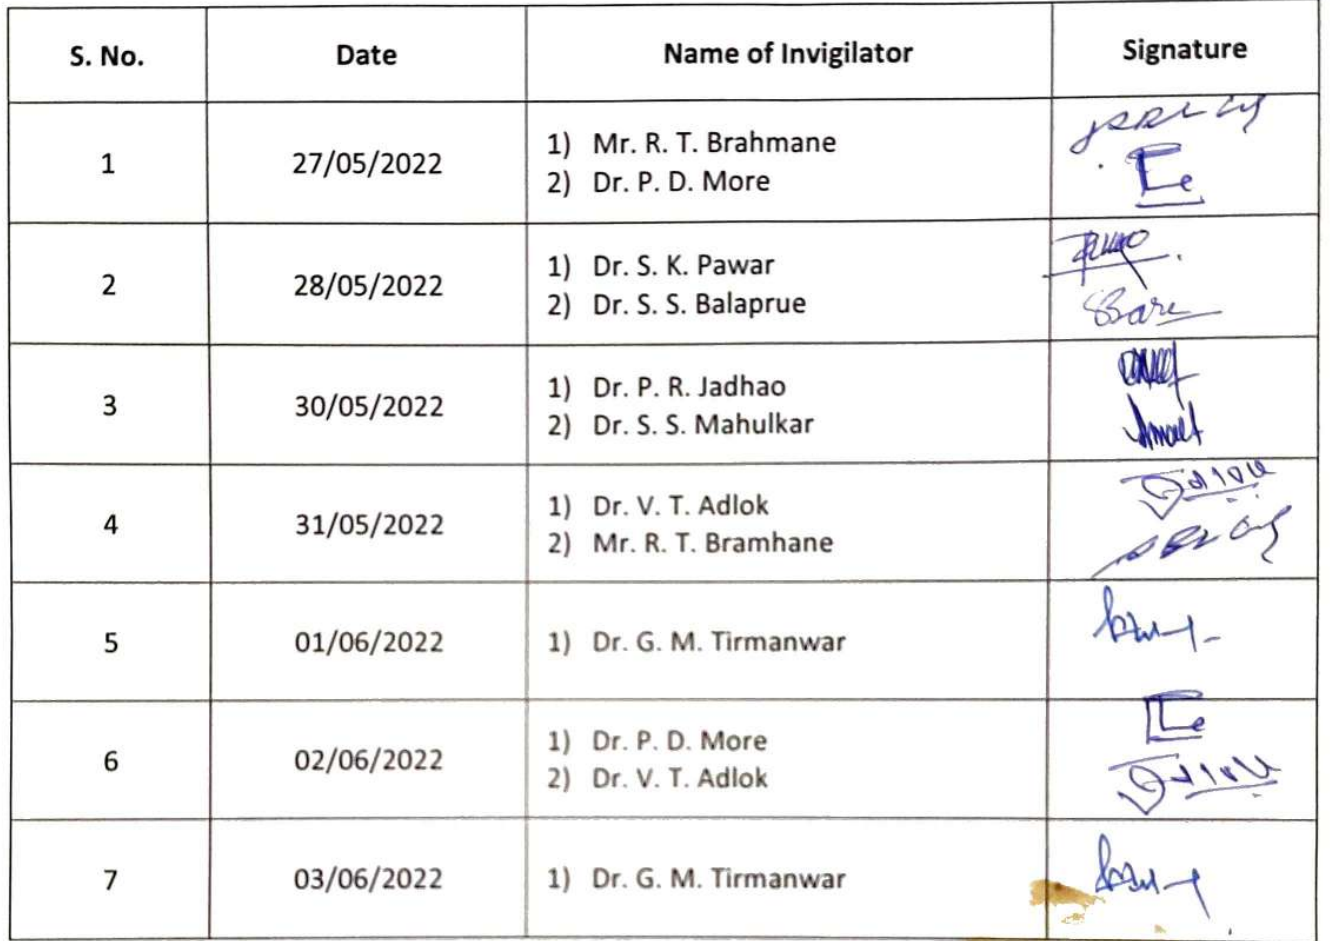 S. No. Date Name of Invigilator Signature
1 27/05/2022 1) Mr. R. T. Brahmane
2) Dr. P. D. More
2 28/05/2022 1) Dr. S. K. Pawar
2) Dr. S. S. Balaprue
3 30/05/2022 1) Dr. P. R. Jadhao
2) Dr. S. S. Mahulkar
4 31/05/2022 1) Dr. V. T. Adlok
2) Mr. R. T. Bramhane
5 01/06/2022 1) Dr. G. M. Tirmanwar
6 02/06/2022 1) Dr. P. D. More
2) Dr. V. T. Adlok
7 03/06/2022 1) Dr. G. M. Tirmanwar